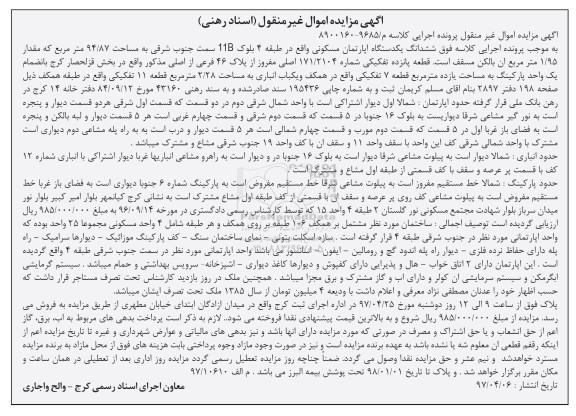 آگهی مزایده اموال غیر منقول (اسناد رهنی)
آگهی مزایده اموال غیر منقول پرونده اجرایی کلاسه م/۹۶۸۵-۸۹۰۰۱۶۰
به موجب پرونده اجرایی کلاسه فوق ششدانگ یکدستگاه آپارتمان مسکونی واقع در طبقه ۴ بلوک 11B سمت جنوب شرقی به مساحت ۹۴/۸۷ متر مربع که مقدار
۱/۹۵ متر مربع آن بالکن مسقف است. قطعه پانزده تفکیکی شماره ۱۷۱/۲۱۰۴ اصلی مفروز از پلاک ۴۶ فرعی از اصلی مذکور واقع در بخش قزلحصار کرج بانضمام
یک واحد پارکینگ به مساحت یازده مترمربع قطعه ۷ تفکیکی واقع در همکف ویکباب انباری به مساحت ۲/۲۸ مترمربع قطعه ۱۱ تفکیکی واقع در طبقه همکف ذیل
صفحه ۱۹۸ دفتر ۲۸۹۷ بنام آقای مسلم کریمان ثبت و به شماره چاپی ۱۹۵۴۳۶ سند صادرشده و به سند رهنی ۴۳۱۶۰ مورخ ۸۴/۰۹/۱۲ دفتر خانه ۱۴ کرج در
رهن بانک ملی قرار گرفته حدود آپارتمان : شمالا اول دیوار اشتراکی است با واحد شمال شرقی دوم در دو قسمت که قسمت اول شرقی هردو قسمت دیوار و پنجره
است به نور گیر مشاعی شرقا دیواریست به بلوک ۱۶ جنوبا در ۵ قسمت که قسمت دوم شرقی و قسمت چهارم غربی است هر ۵ قسمت دیوار و لبه بالکن و پنجره
است به فضای باز غربا اول در ۵ قسمت که قسمت دوم مورب و قسمت چهارم شمالی است هر ۵ قسمت دیوار و درب است به به راه پله مشاعی دوم دیواری است
مشترک با واحد شمالی شرقی کف این واحد با سقف واحد ۱۱ و سقف آن با کف واحد ۱۹ جنوب شرقی مشاع و مشترک میباشد .
حدود انباری : شمالا دیوار است به پیلوت مشاعی شرقا دیوار است به بلوک ۱۶ جنوبا در و دیوار است به راهرو مشاعی انباریها غربا دیوار اشتراکی با انباری شماره ۱۲
کف با قسمت پر عرصه و سقف با کف قسمتی از طبقه اول مشاع و مشترک است
حدود پارکینگ : شمالا خط مستقیم مفروز است به پیلوت مشاعی شرقا خط مستقیم مفروض است به پارکینگ شماره ۶ جنوبا دیواری است به فضای باز غربا خط
مستقیم مفروض است به پیلوت مشاعی کف روی پر عرصه و سقف آن با قسمتی از کف طبقه اول مشاع مشترک است به نشانی کرج کیانمهر بلوار امیر کبیر بلوار نور
میدان سرباز بلوار شهادت مجتمع مسکونی نور گلستان ۲ طبقه ۴ واحد ۱۵ که توسط کارشناس رسمی دادگستری در مورخه ۹۶/۰۹/۱۴ به مبلغ ۹۸۵/۰۰۰/۰۰۰ ریال
ارزیابی گردیده است توصیف اجمالی : ساختمان مورد نظر مشتمل بر همکف ۶ طبقه بر روی همکف و هر طبقه شامل ۴ واحد مسکونی مجموعا ۲۵ واحد بوده که
واحد آپارتمانی مورد نظر در جنوب شرقی طبقه ۴ قرار گرفته است . سازه اسکلت بتونی - نمای ساختمان سنگ - کف پارکینگ موزائیک - دیوارها سرامیک - راه
پله دارای حفاظ نرده فلزی - دیوار راه پله اندود گچ و رومالین - آیفون - آسانسور می باشد واحد آپارتمانی مورد نظر در سمت جنوب شرقی طبقه ۴ واقع گردیده
است . این آپارتمان دارای ۲ اتاق خواب - هال و پذیرایی دارای کفپوش و دیوارها کاغذ دیواری - آشپزخانه- سرویس بهداشتی و حمام میباشد . سیستم گرمایشی
آبگرمکن و سیستم سرمایشی آن کولر و دارای آب و گاز مشترک و برق مجزا میباشد . همچنین ملک در روز بازدید کارشناس تحت تصرف مستاجر قرار داشت که
حسب اظهار خود را عدنان مصطفی نژاد معرفی و اعلام داشت با ودیعه ۴ میلیون تومان از سال ۱۳۸۵ ملک تحت تصرف ایشان میباشد.
پلاک فوق از ساعت ۹ الی ۱۲ روز دوشنبه مورخ ۹۷/۰۴/۲۵ در اداره اجرای ثبت کرج واقع در میدان آزادگان ابتدای خیابان مطهری از طریق مزایده به فروش می
رسد. مزایده از مبلغ ۹۸۵/۰۰۰/۰۰۰ ریال شروع و به بالاترین قیمت پیشنهادی نقدا فروخته می شود.. لازم به ذکر است پرداخت بدهی های مربوط به آب، برق، گاز
اعم از حق انشعاب و یا حق اشتراک و مصرف در صورتی که مورد مزایده دارای آنها باشد و نیز بدهی های مالیاتی و عوارض شهرداری و غیره تا تاریخ مزایده اعم از
اینکه رقم قطعی آن معلوم شده یا نشده باشد به عهده برنده مزایده است و نیز در صورت وجود مازاد وجوه پرداختی بابت هزینه های فوق از محل مازاد به برنده مزایده
مسترد خواهدشد و نیم عشر و حق مزایده نقدا وصول می گردد. ضمناً چنانچه روز مزایده تعطیل رسمی گردد مزایده روز اداری بعد از تعطیلی در همان ساعت و
مکان مقرر برگزار خواهد شد . و پلاک تا تاریخ ۹۸/۰۱/۰۱ تحت پوشش بیمه البرز می باشد . م الف ۹۷/۱۰۶۱۰
تاریخ انتشار : ۹۷/۰۴/۰۶
معاون اجرای اسناد رسمی کرج - والح واجاری